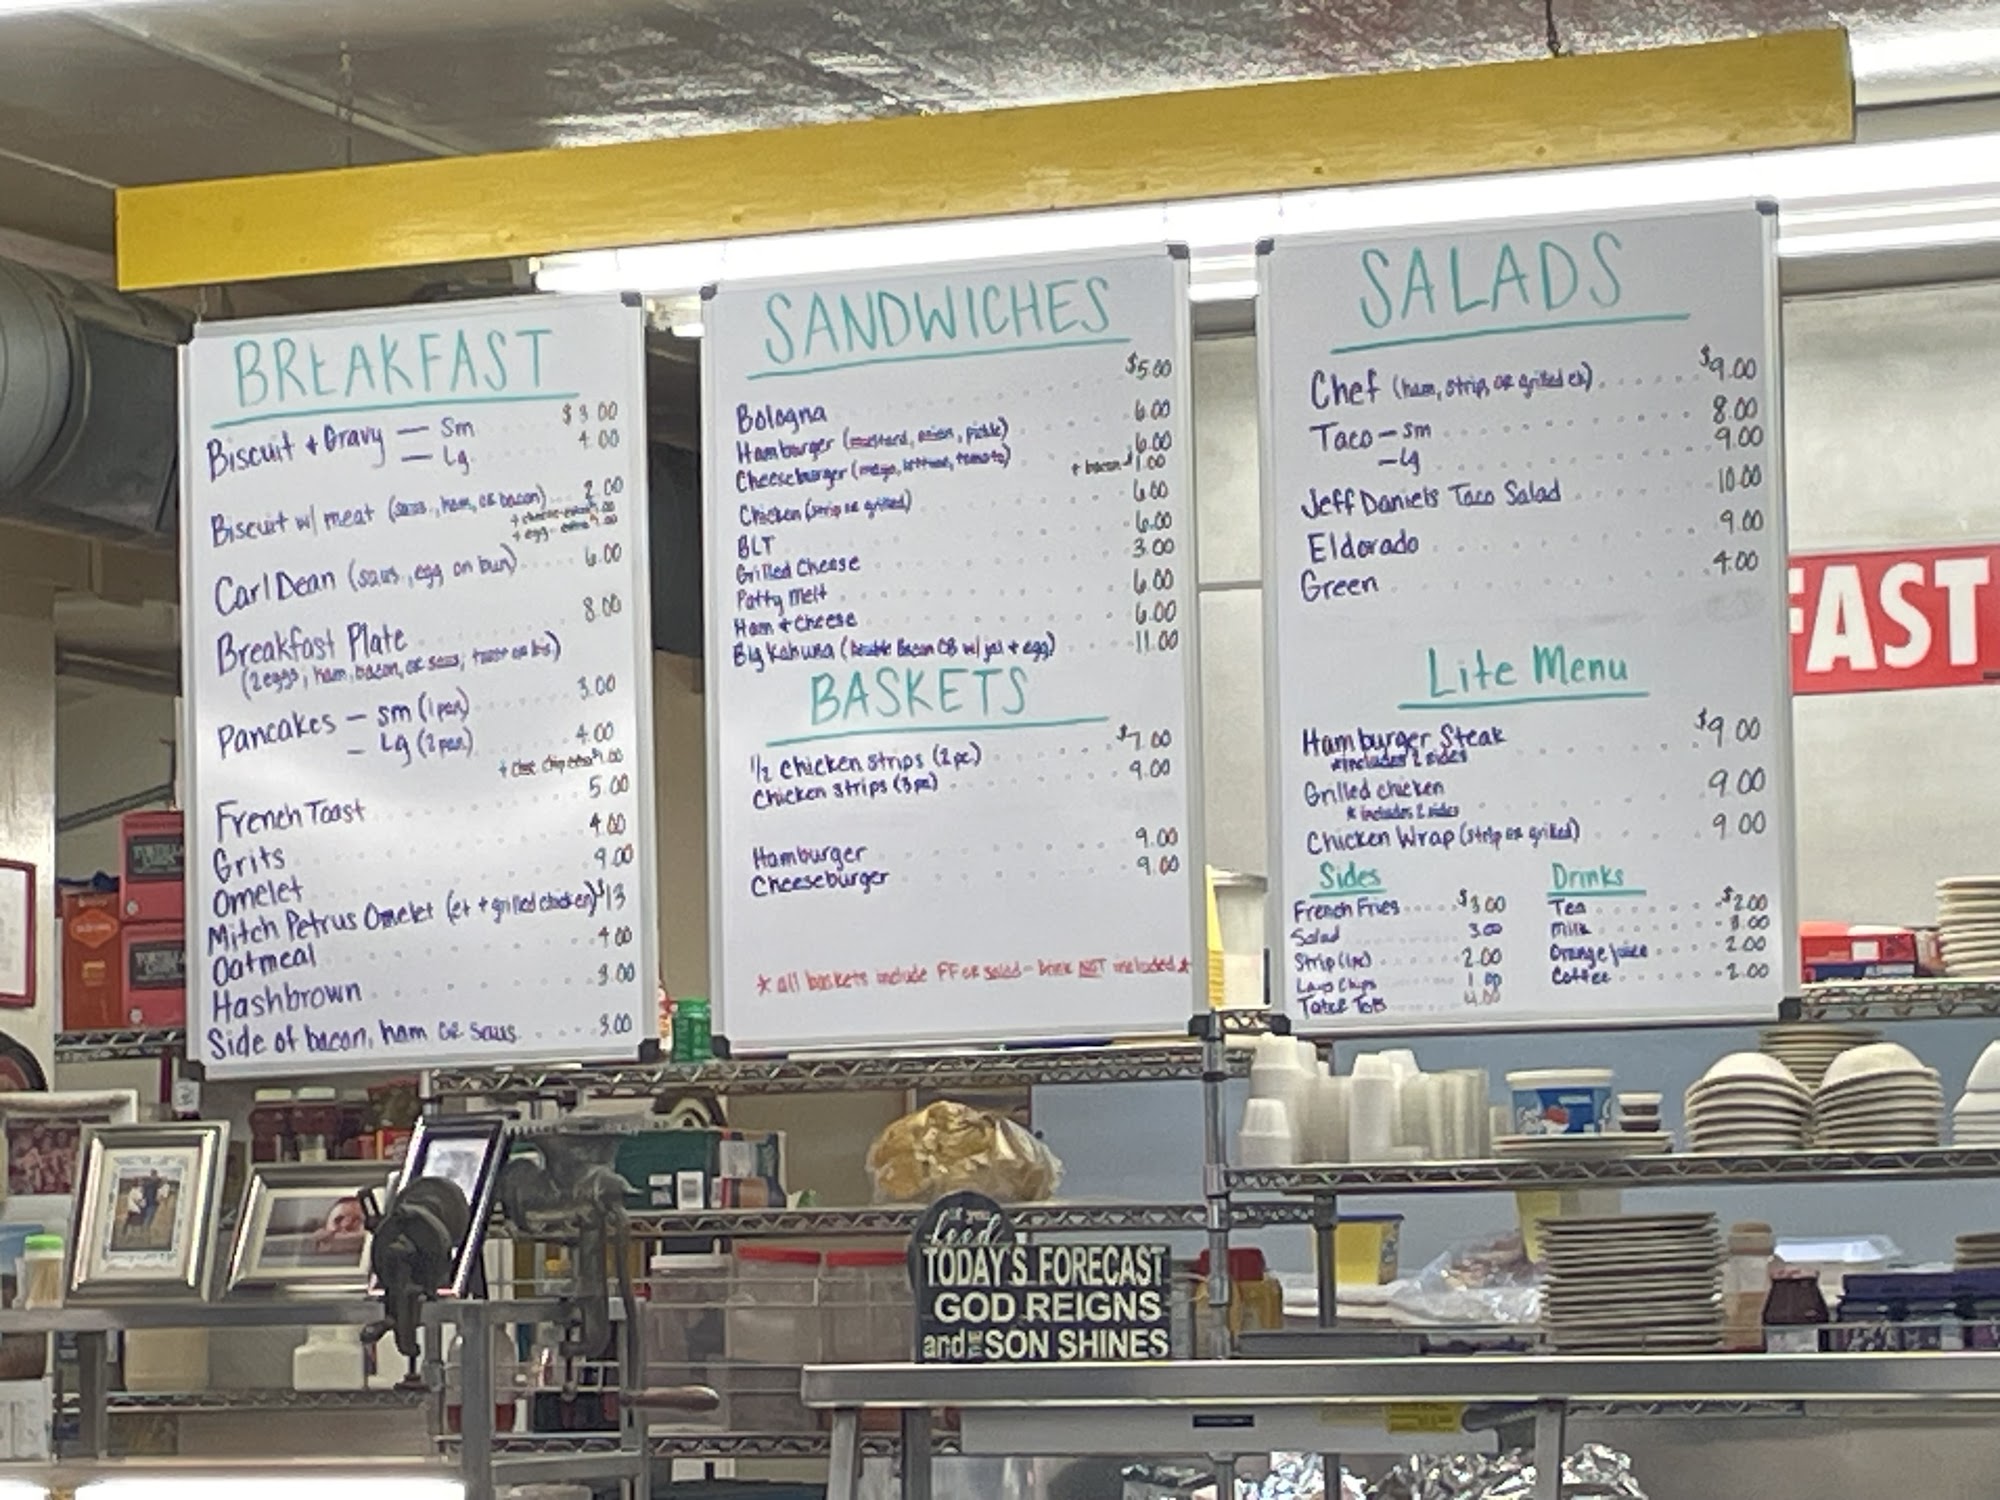 BREAKFAST
Biscuit + Gravy — Sm $3.00
— Lg 4.00
Biscuit w/ meat (saus., ham, or bacon) 2.00
+ cheese extra 1.00
+ egg - extra 1.00
Carl Dean (saus., egg on bun) 6.00
Breakfast Plate 8.00
(2 eggs, ham, bacon, or saus; toast or bis)
Pancakes — sm (1 pan) 3.00
— Lg (2 pan) 4.00
+ choc. chip extra $1.00
French Toast 5.00
Grits 4.00
Omelet 9.00
Mitch Petrus Omelet (et + grilled chicken) $13
Oatmeal 4.00
Hashbrown 3.00
Side of bacon, ham or saus. 3.00
SANDWICHES
Bologna $5.00
Hamburger (mustard, onion, pickle) 6.00
Cheeseburger (mayo, lettuce, tomato) 6.00
+ bacon $1.00
Chicken (strip or grilled) 6.00
BLT 6.00
Grilled Cheese 3.00
Patty Melt 6.00
Ham + Cheese 6.00
Big Kahuna (double Bacon CB w/ jal + egg) 11.00
BASKETS
1/2 Chicken strips (2 pc.) $7.00
Chicken strips (3 pc) 9.00
Hamburger 9.00
Cheeseburger 9.00
* all baskets include FF or salad - Drink NOT included *
SALADS
Chef (ham, strip, or grilled ck) $9.00
Taco — sm 8.00
— Lg 9.00
Jeff Daniels Taco Salad 10.00
Eldorado 9.00
Green 4.00
Lite Menu
Hamburger Steak $9.00
*includes 2 sides
Grilled chicken 9.00
* includes 2 sides
Chicken Wrap (strip or grilled) 9.00
Sides
French Fries $3.00
Salad 3.00
Strip (1pc) 2.00
Lays Chips 1.00
Tater Tots 4.00
Drinks
Tea $2.00
Milk 3.00
Orange juice 2.00
Coffee 2.00
FAST
feed
TODAY'S FORECAST
GOD REIGNS
and THE SON SHINES